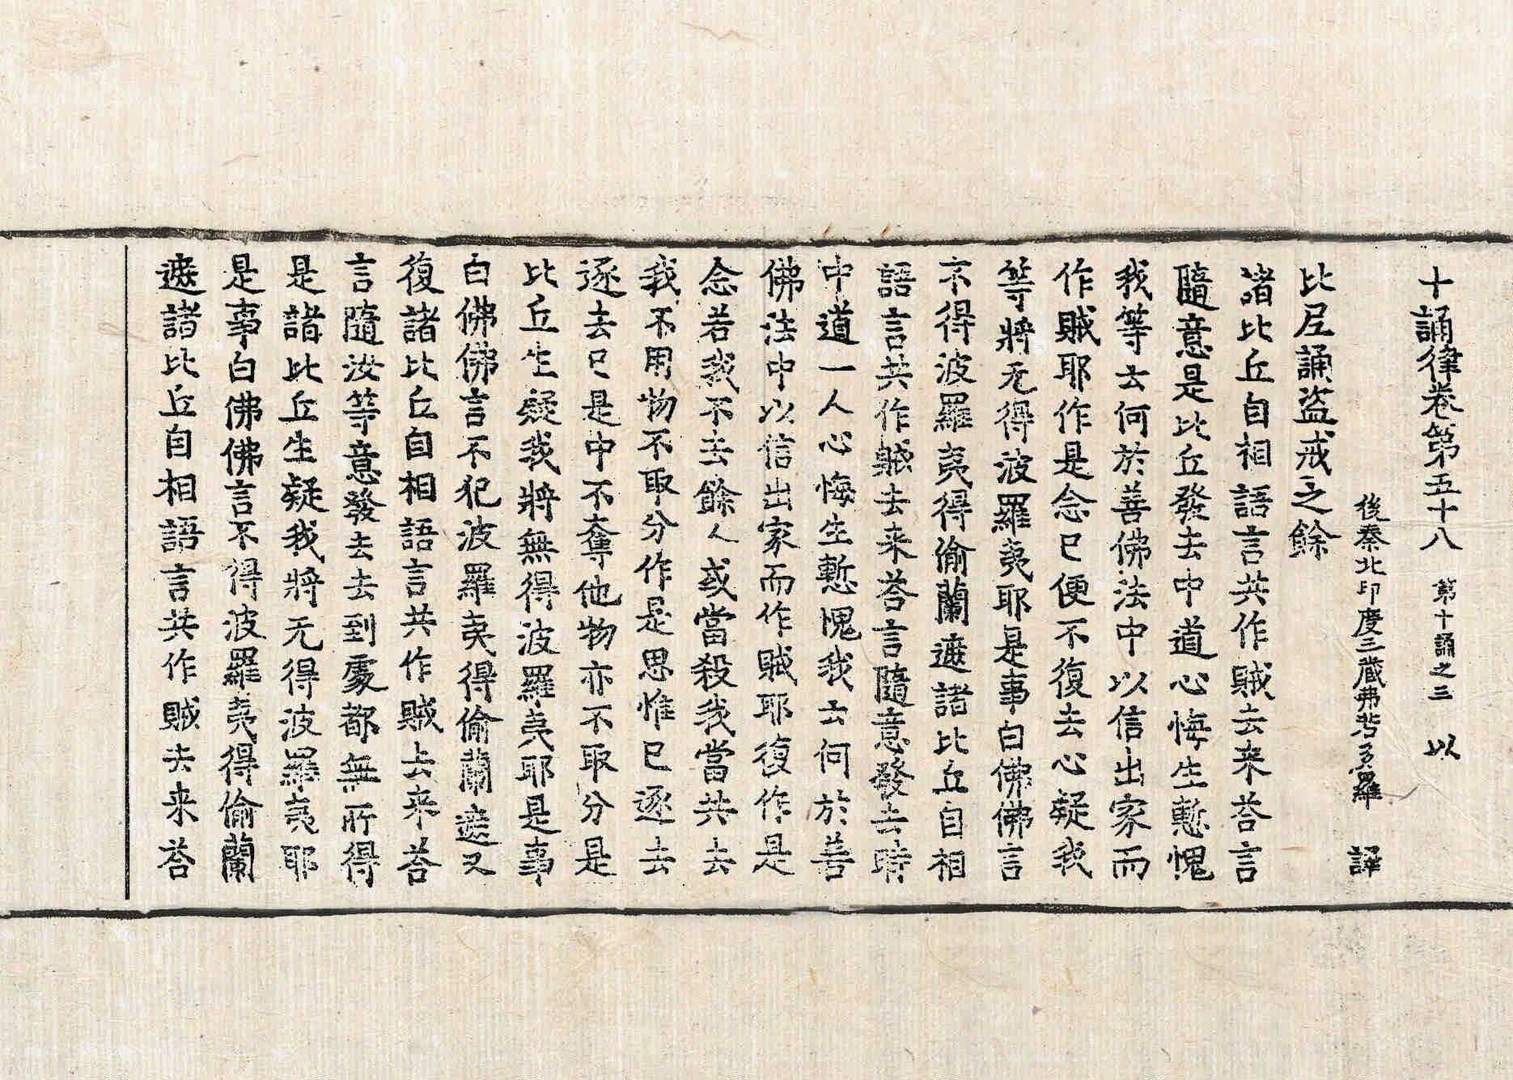 十誦律卷第五十八 第十誦之三 以
後秦北印度三藏弗若多羅 譯
比尼誦盜戒之餘
諸比丘自相語言共作賊去来荅言
隨意是比丘發去中道心悔生慙愧
我等云何於善佛法中以信出家而
作賊耶作是念已便不復去心疑我
等將无得波羅夷耶是事白佛佛言
不得波羅夷得偷蘭遮諸比丘自相
語言共作賊去来荅言隨意發去時
中道一人心悔生慙愧我云何於善
佛法中以信出家而作賊耶復作是
念若我不去餘人或當殺我當共去
我不用物不取分作是思惟已逐去
逐去已是中不奪他物亦不取分是
比丘生疑我將無得波羅夷耶是事
白佛佛言不犯波羅夷得偷蘭遮又
復諸比丘自相語言共作賊去来荅
言隨汝等意發去去到處都無所得
是諸比丘生疑我將无得波羅夷耶
是事白佛佛言不得波羅夷得偷蘭
遮諸比丘自相語言共作賊去来荅